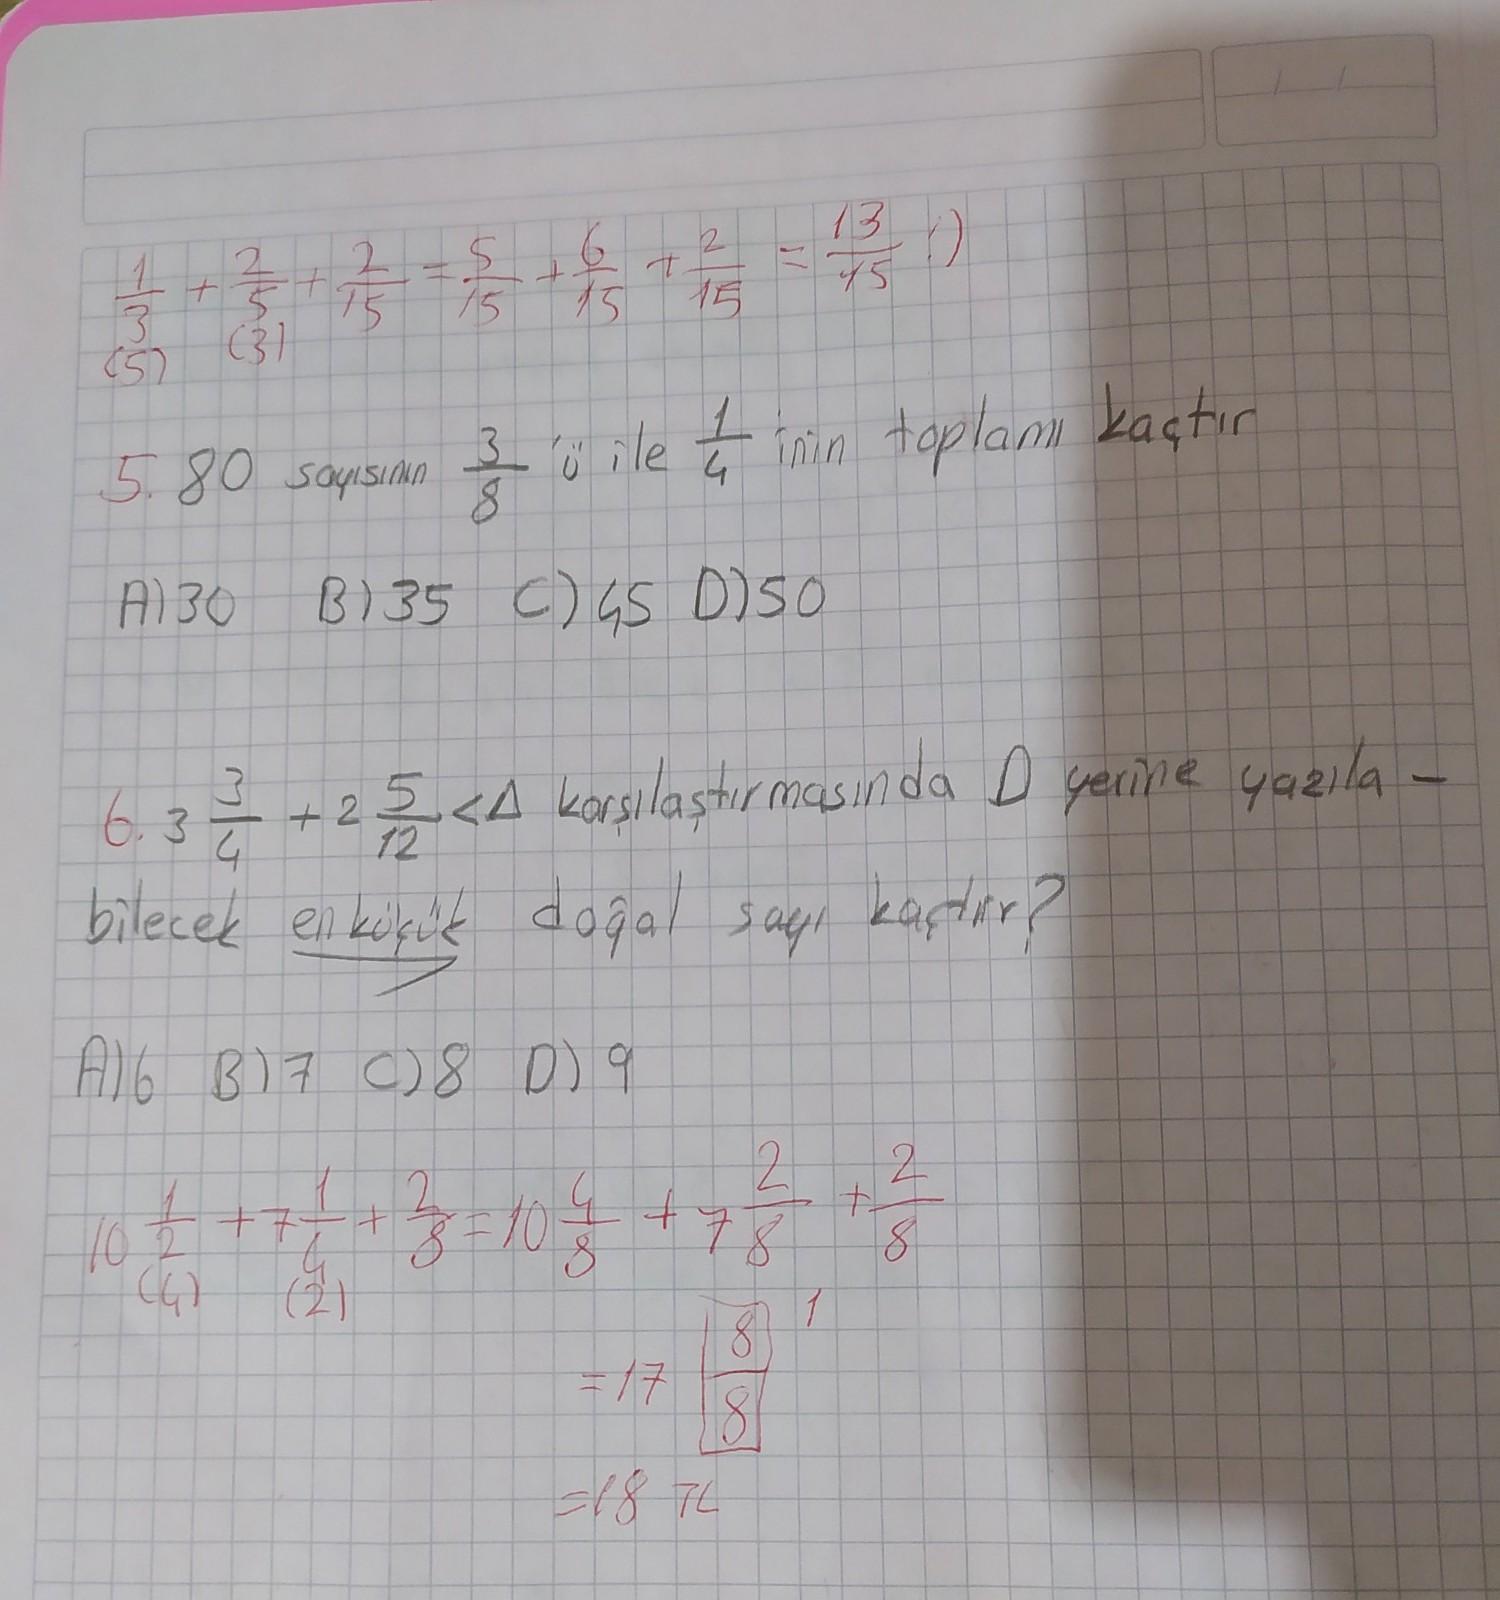 1/3 + 2/5 + 2/15 = 5/15 + 6/15 + 2/15 = 13/15 :)
(5) (3)
5. 80 sayısının 3/8 'ü ile 1/4 'inin toplamı kaçtır
A) 30 B) 35 C) 45 D) 50
6. 3 3/4 + 2 5/12 < Δ karşılaştırmasında Δ yerine yazıla-
bilecek en küçük doğal sayı kaçtır?
A) 6 B) 7 C) 8 D) 9
10 1/2 + 7 1/4 + 2/8 = 10 4/8 + 7 2/8 + 2/8
(4) (2)
= 17 8/8 1
= 18 TL